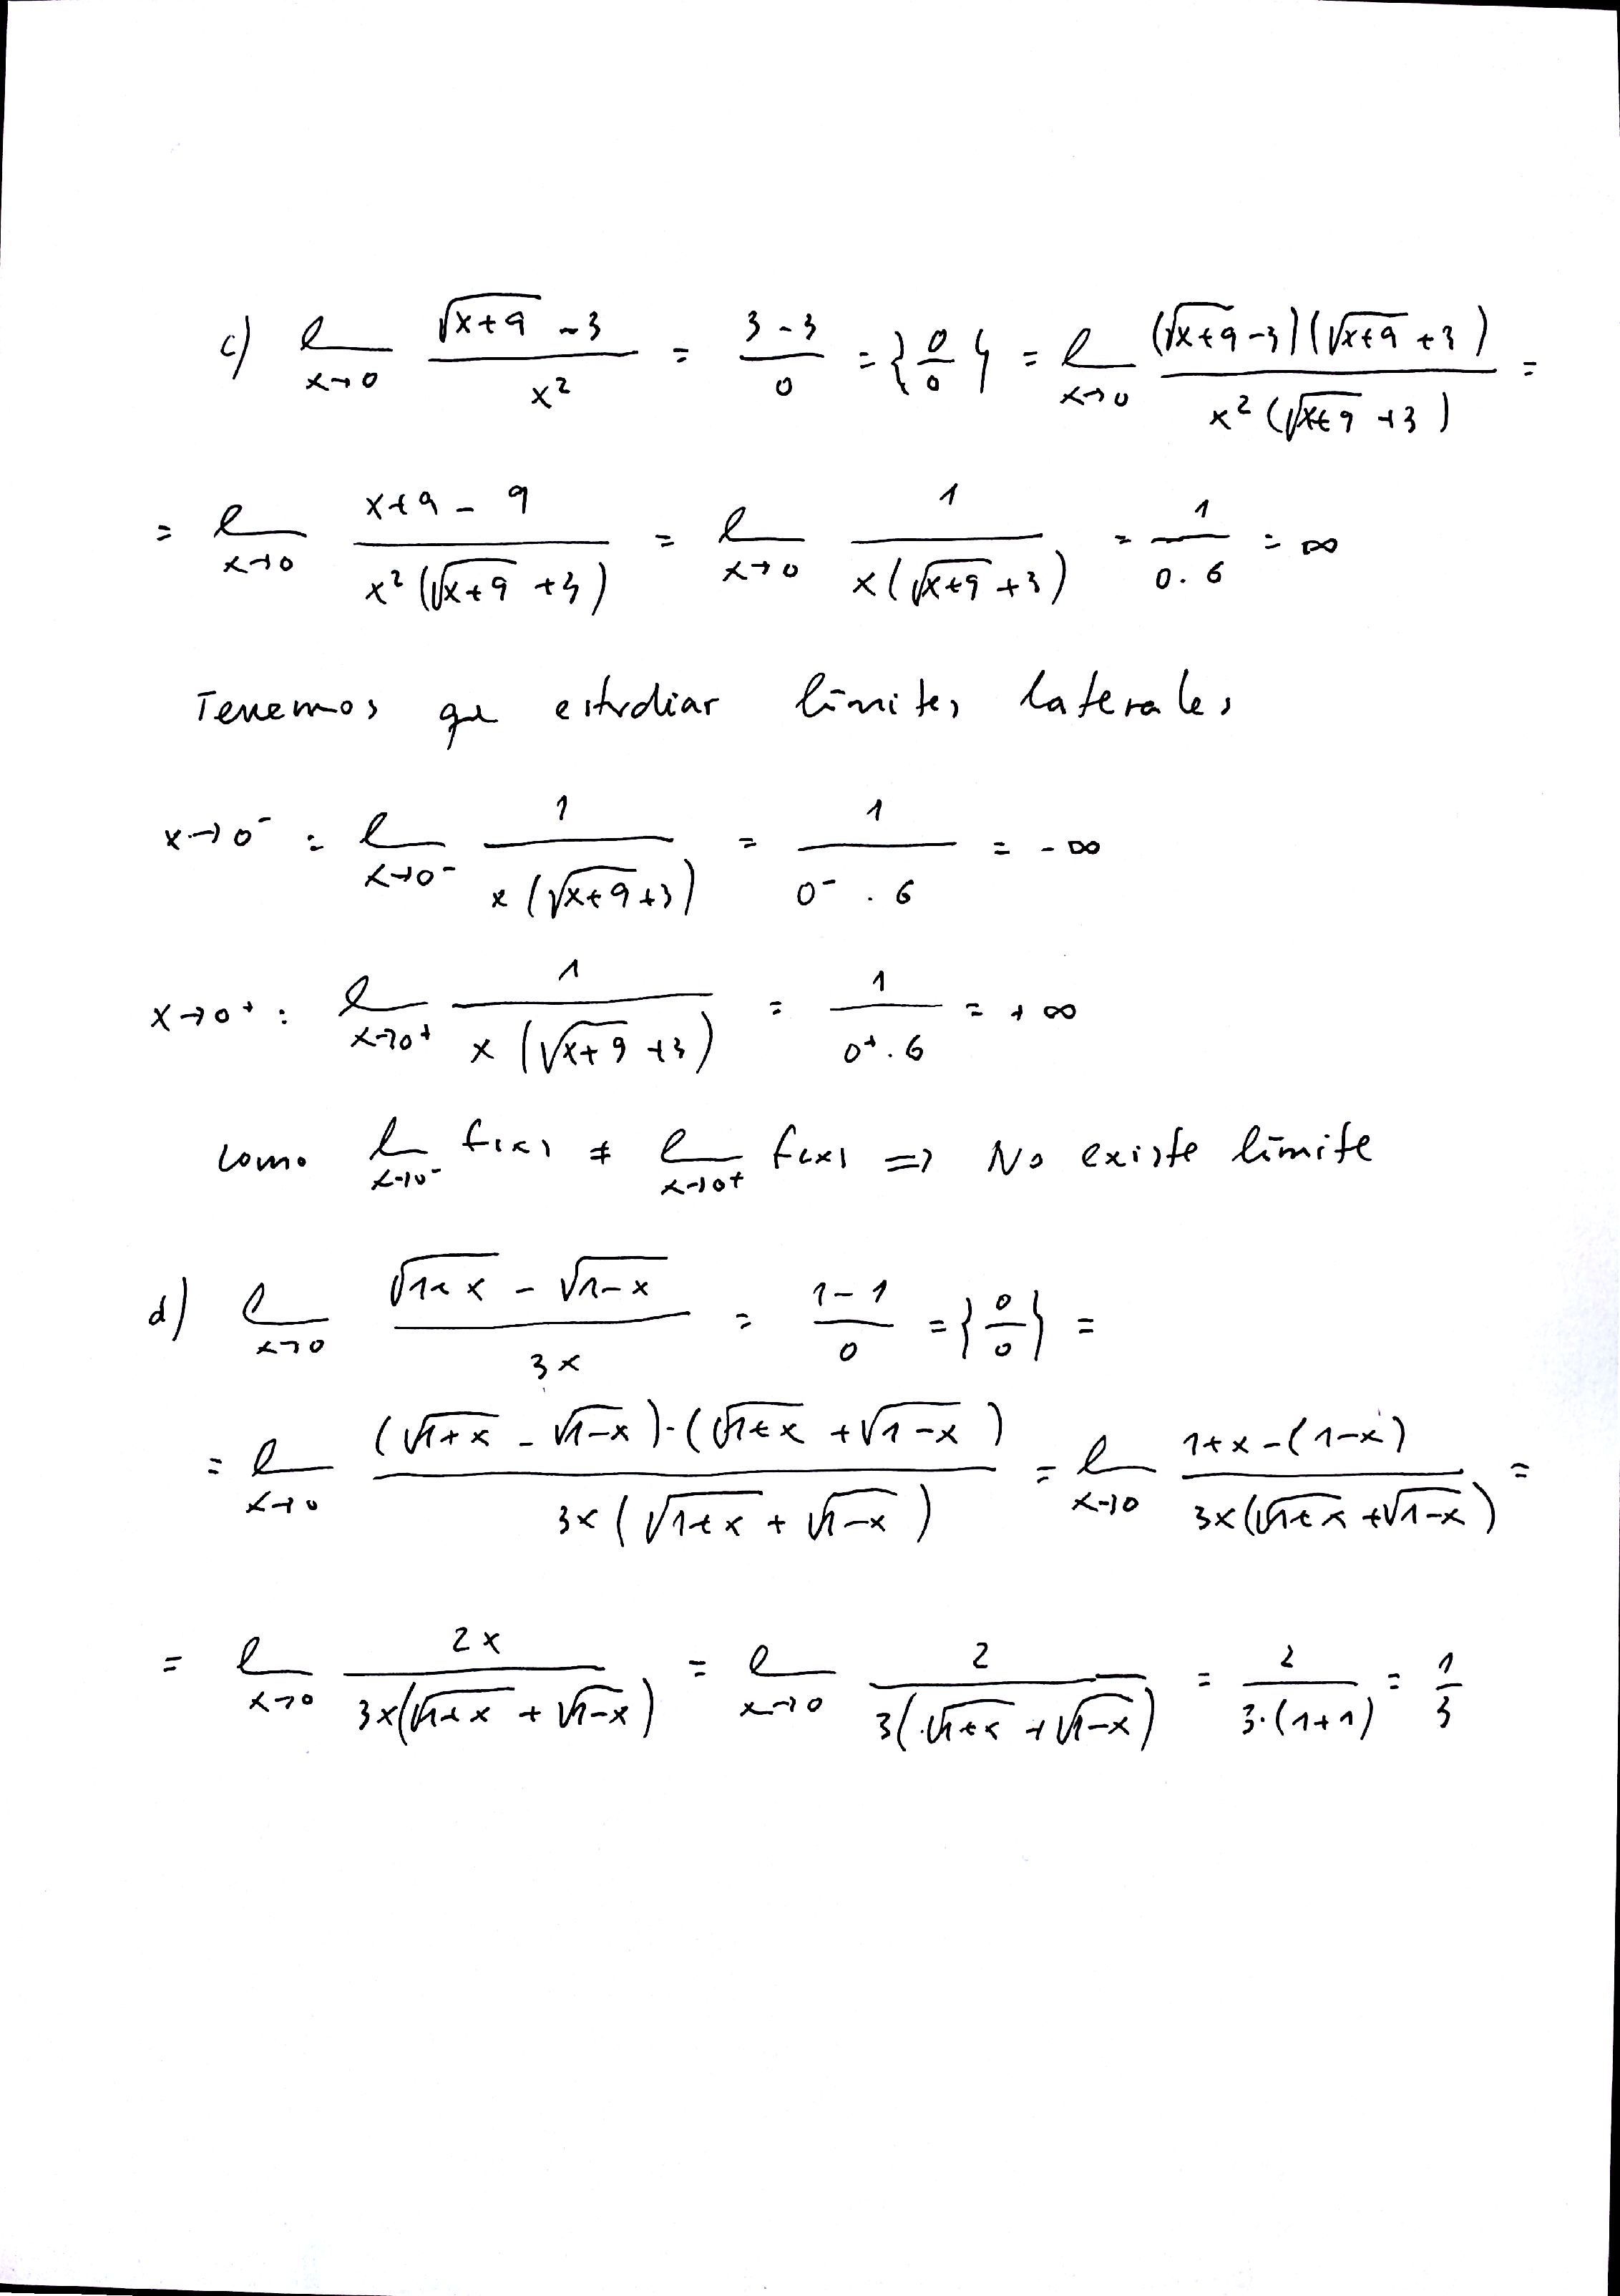 c) lim x→0 (√(x+9) - 3)/x² = (3-3)/0 = {0/0} = lim x→0 ((√(x+9) - 3)(√(x+9) + 3))/(x²(√(x+9) + 3)) =
= lim x→0 (x+9 - 9)/(x²(√(x+9) + 3)) = lim x→0 1/(x(√(x+9) + 3)) = 1/(0·6) = ∞
Tenemos que estudiar límites laterales
x→0⁻ : lim x→0⁻ 1/(x(√(x+9) + 3)) = 1/(0⁻·6) = -∞
x→0⁺ : lim x→0⁺ 1/(x(√(x+9) + 3)) = 1/(0⁺·6) = +∞
como lim x→0⁻ f(x) ≠ lim x→0⁺ f(x) => No existe límite
d) lim x→0 (√(1+x) - √(1-x))/3x = (1-1)/0 = {0/0} =
= lim x→0 ((√(1+x) - √(1-x))·(√(1+x) + √(1-x)))/(3x(√(1+x) + √(1-x))) = lim x→0 (1+x-(1-x))/(3x(√(1+x) + √(1-x))) =
= lim x→0 2x/(3x(√(1+x) + √(1-x))) = lim x→0 2/(3(√(1+x) + √(1-x))) = 2/(3·(1+1)) = 1/3